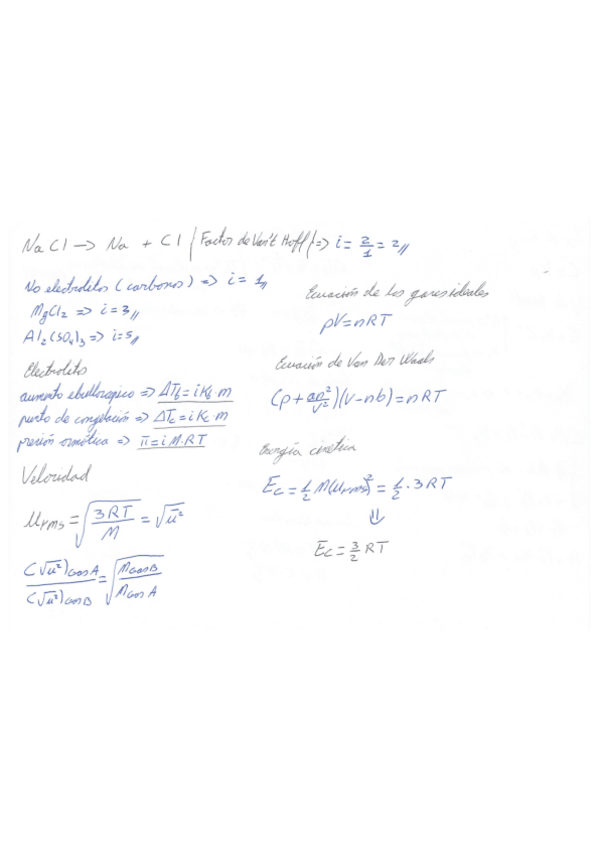 NaCl → Na + Cl / Factor de Van't Hoff / => i = 2/1 = 2//
No electrolitos (carbonos) => i = 1//
MgCl2 => i = 3//
Al2(SO4)3 => i = 5//
Electrolitos
aumento ebulloscopico => ΔTb = i Kb · m
punto de congelación => ΔTc = i Kc · m
presión osmótica => π = i M · RT
Velocidad
Urms = √(3RT/M) = √ū²
(√ū²) gas A / (√ū²) gas B = √(M gas B / M gas A)
Ecuación de los gases ideales
pV = nRT
Ecuación de Van Der Waals
(p + an²/v²)(v - nb) = nRT
Energía cinética
Ec = 1/2 M(urms)² = 1/2 · 3RT
⇓
Ec = 3/2 RT